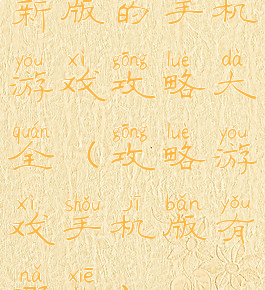 新版的手机
yóu xì gōng lüè dà
游戏攻略大
quán gōng lüè yóu
全(攻略游
xì shǒu jī bǎn yǒu
戏手机版有
nǎ xiē